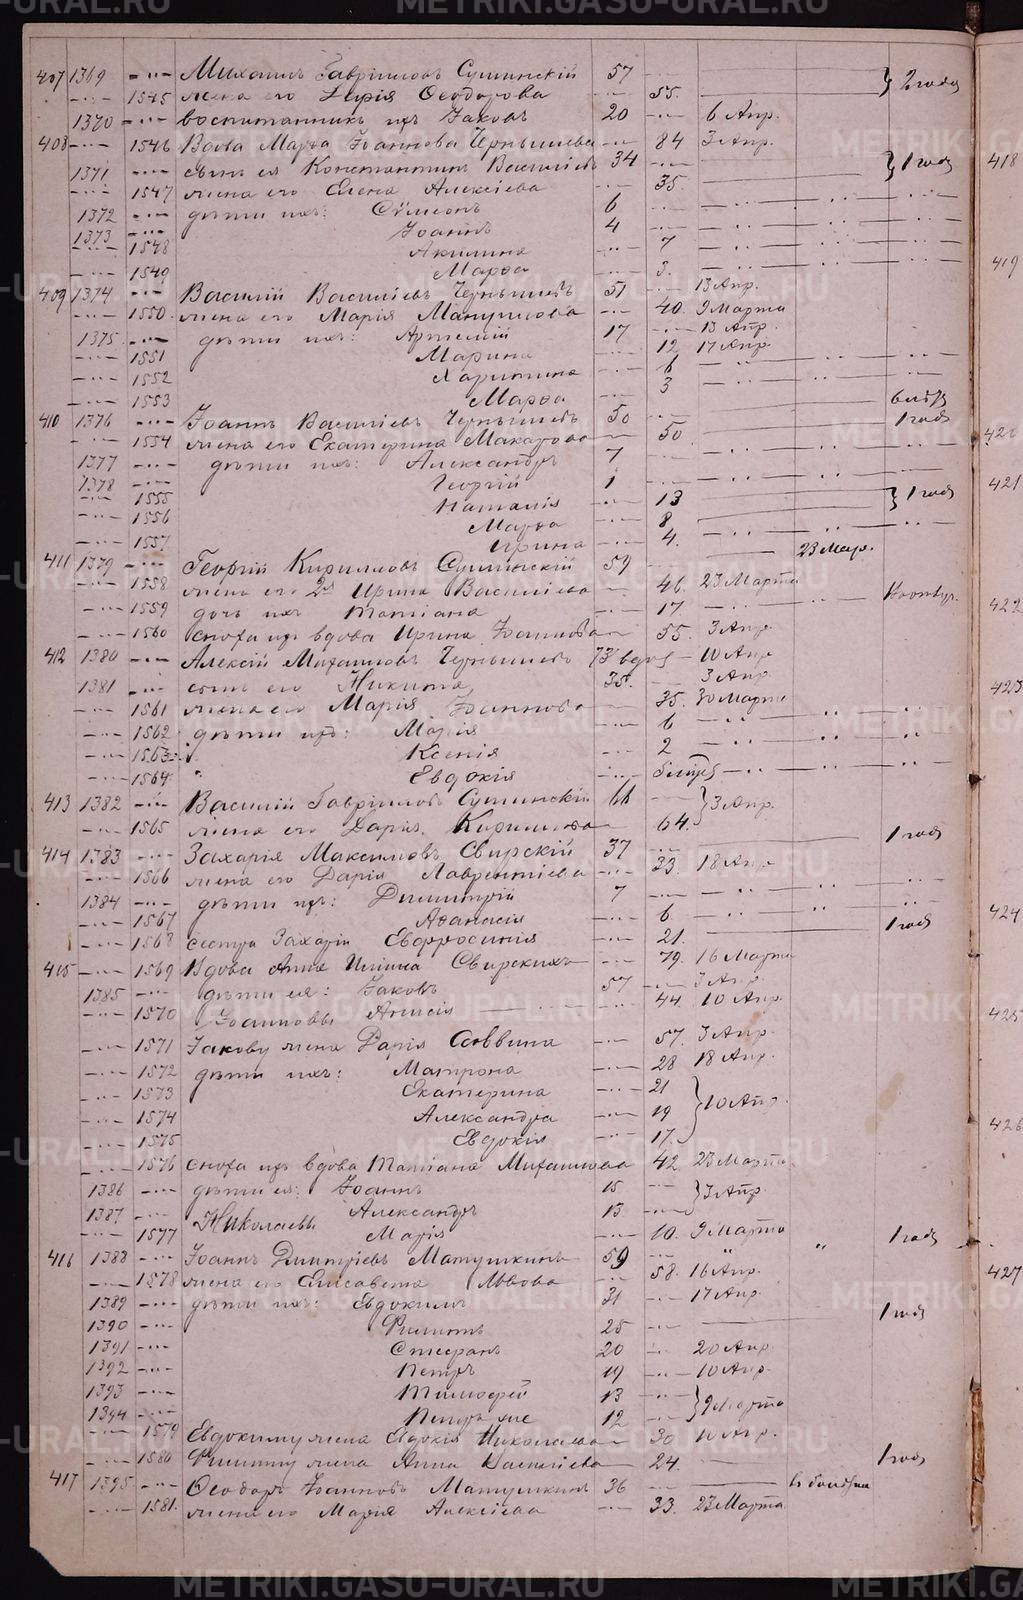 METRIKI.GASO-URAL.RU
407 1369 -"- Михаилъ Гавріиловъ Сушинскій 57 -"- 2 года
-"- 1545 жена его Дарія Ѳеодорова -"- 55.
1370 -"- воспитанникъ ихъ Іаковъ 20 -"- 6 Апр.
408 -"- 1546 Вдова Марѳа Іоаннова Чернышева -"- 84 3 Апр.
1371 -"- сынъ ея Константинъ Васильевъ 34 -"- 1 годъ
-"- 1547 жена его Елена Алексіева -"- 35.
1372 -"- дѣти ихъ: Сѵмеонъ 6 -"-
1373 -"- Іоаннъ 4 -"-
-"- 1548 Акилина -"- 7
-"- 1549 Марѳа -"- 3.
409 1374 -"- Василій Василіевъ Чернышевъ 51 -"- 13 Апр.
-"- 1550. жена его Марія Мануилова -"- 40. 9 Марта
1375. -"- дѣти ихъ: Артемій 17 -"- 13 Апр.
-"- 1551 Марина -"- 12 17 Апр.
-"- 1552 Харитина -"- 6
-"- 1553 Марѳа -"- 3
410 1376 -"- Іоаннъ Василіевъ Чернышевъ 50 -"- 1 годъ
-"- 1554 жена его Екатерина Макарова -"- 50
1377 -"- дѣти ихъ: Александръ 7 -"-
1378 -"- Георгій 1 -"-
-"- 1555 Наталія -"- 13 1 годъ
-"- 1556 Марѳа -"- 8
-"- 1557 Ирина -"- 4.
411 1379 -"- Георгій Кирилловъ Сушинскій 59 -"- 23 Мар.
-"- 1558 жена его 2я Ирина Василіева -"- 46. 23 Марта
-"- 1559 дочь ихъ Татіана -"- 17
-"- 1560 сноха ихъ вдова Ирина Іоаннова -"- 55. 3 Апр.
412 1380 -"- Алексій Михаиловъ Чернышевъ 73 вдов. 10 Апр
1381 -"- сынъ его Никита, 35. 3 Апр.
-"- 1561 жена его Марія Іоаннова 35. 30 Марта
-"- 1562 дѣти ихъ: Марія -"- 6
-"- 1563 Ксенія -"- 2
-"- 1564 Евдокія -"-
413 1382 -"- Василій Гавріиловъ Сушинскій 66 -"- 3 Апр.
-"- 1565 жена его Дарія Кириллова -"- 64.
414 1383 -"- Захарія Максимовъ Свирскій 37 -"- 1 годъ
-"- 1566 жена его Дарія Лаврентіева -"- 33. 18 Апр
1384 -"- дѣти ихъ: Димитрій 7 -"-
-"- 1567 Аѳанасія -"- 6.
-"- 1568 сестра Захаріи Евфросинія -"- 21. 1 годъ
415 -"- 1569 Вдова Анна Ильина Свирскихъ -"- 79. 16 Марта
1385 -"- дѣти ея: Іаковъ 57 -"- 3 Апр.
-"- 1570 Іоанновы Анисія -"- 44. 10 Апр.
-"- 1571 Іакову жена Дарія Саввина 57. 3 Апр.
-"- 1572 дѣти ихъ: Матрона -"- 28 18 Апр.
-"- 1573 Екатерина -"- 21
-"- 1574 Александра -"- 19 10 Апр.
-"- 1575 Евдокія -"- 17.
-"- 1576 сноха ихъ вдова Татіана Михаилова 42. 23 Марта
1386 -"- дѣти ея: Іоаннъ 15 -"- 3 Апр
1387 -"- Николаевы Александръ 13 -"-
-"- 1577 Марія -"- 10. 9 Марта 1 годъ
416 1388 -"- Іоаннъ Димитріевъ Матушкинъ 59 -"- "
-"- 1578 жена его Елисавета Львова -"- 58. 16 Апр.
1389 -"- дѣти ихъ: Евдокимъ 31 -"- 17 Апр.
1390 -"- Филиппъ 25 -"- 1 годъ
1391 -"- Стефанъ 20 -"- 20 Апр.
1392 -"- Петръ 19 -"- 10 Апр.
1393 -"- Тимофей 13 -"- 9 Марта
1394 -"- Петръ же 12 -"-
-"- 1579 Евдокиму жена Евдокія Николаева 30 10 Апр.
-"- 1580 Филиппу жена Анна Василіева 24. 1 годъ
417 1395 -"- Ѳеодоръ Іоанновъ Матушкинъ 36 -"-
-"- 1581. жена его Марія Алексіева -"- 33. 23 Марта
418
419
420
421
422
423
424
425
426
427